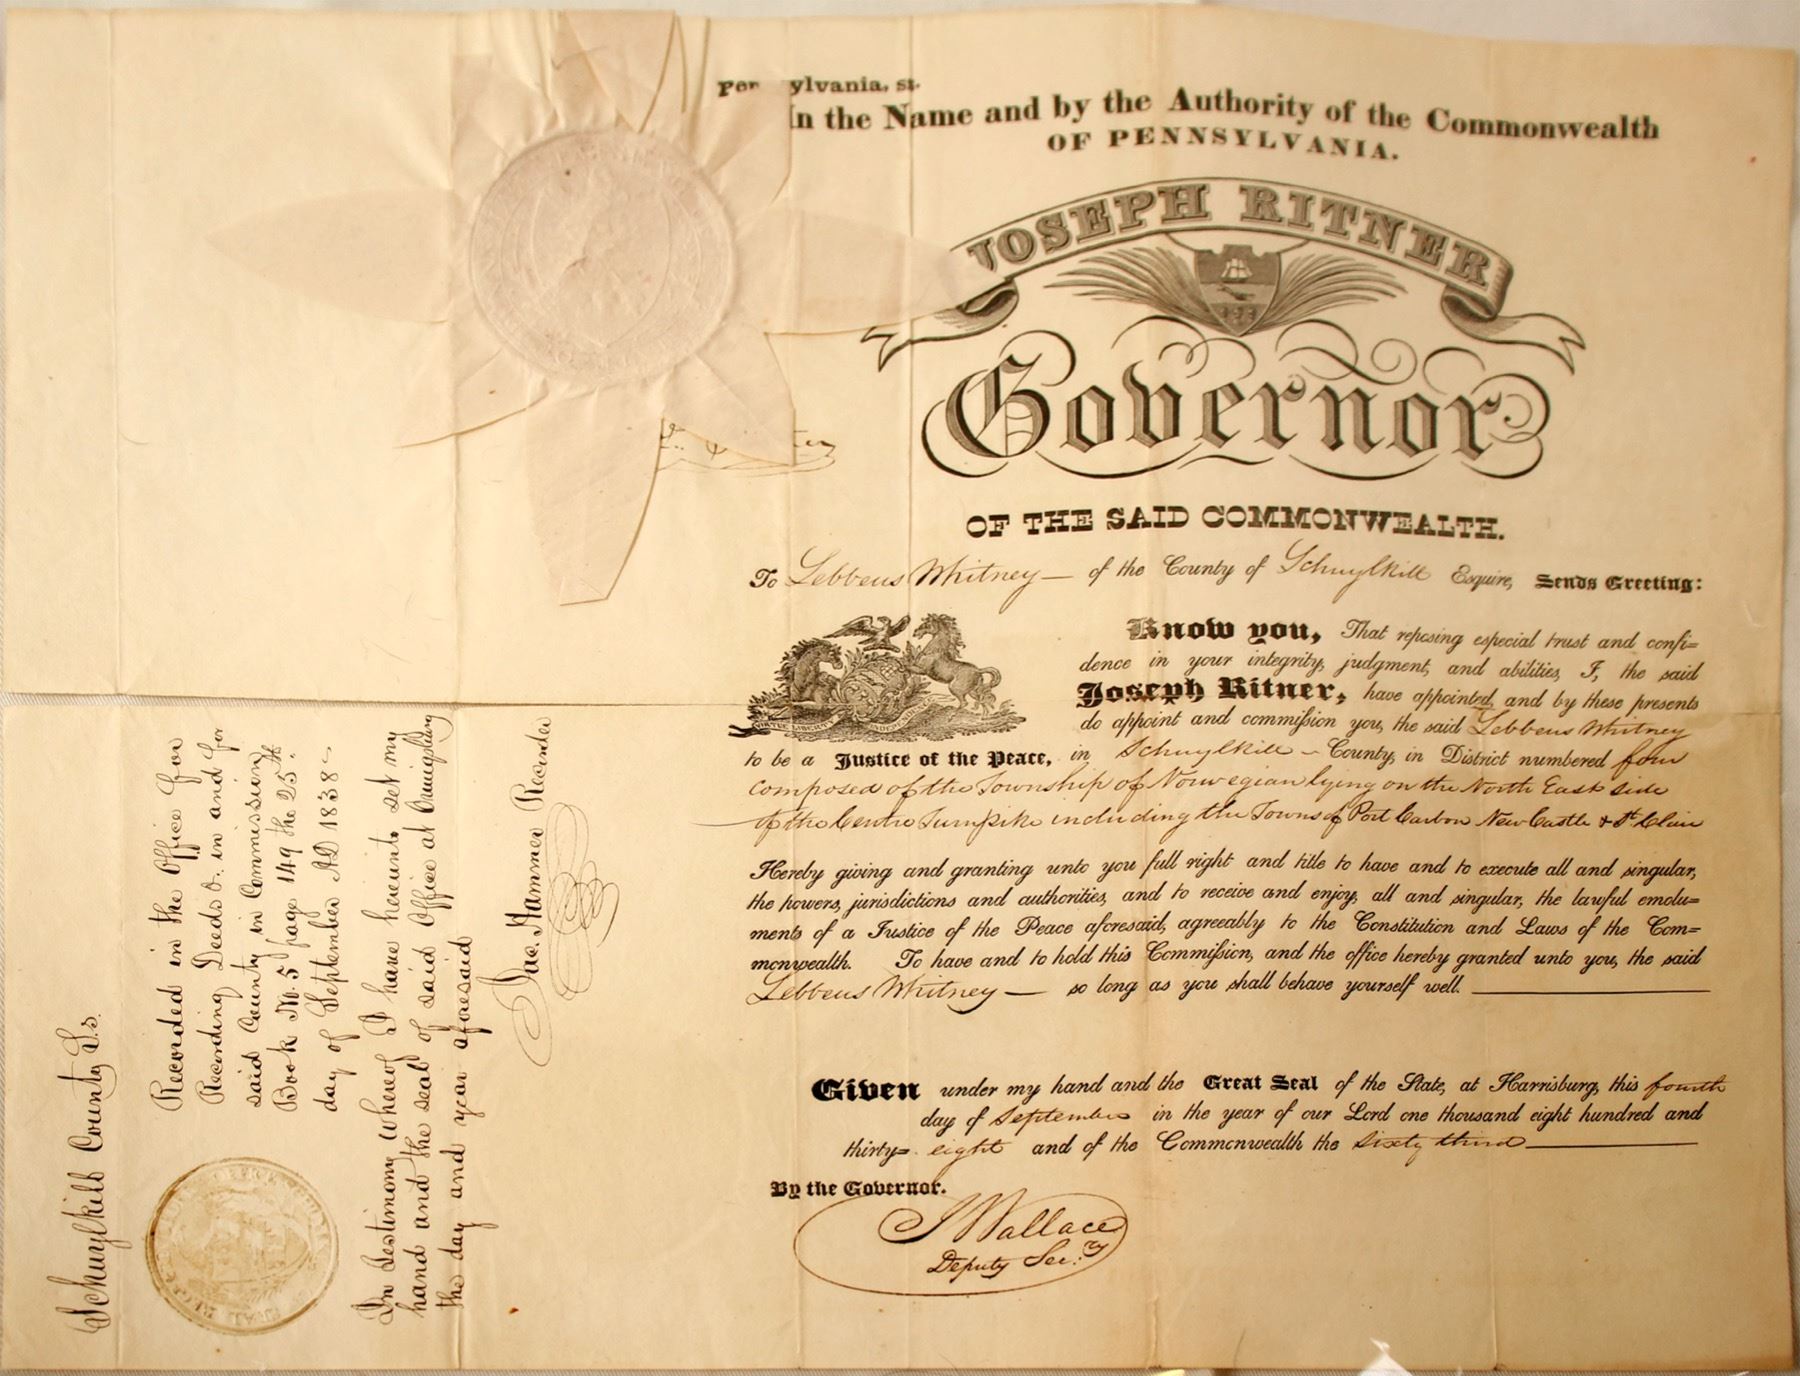 ylvania, ss.
In the Name and by the Authority of the Commonwealth
OF PENNSYLVANIA.
JOSEPH RITNER
Governor
OF THE SAID COMMONWEALTH.
To Lebbeus Whitney — of the County of Schuylkill Esquire, Sends Greeting:
Know you, That reposing especial trust and confi=
dence in your integrity, judgment, and abilities, I, the said
Joseph Ritner, have appointed, and by these presents
do appoint and commission you, the said Lebbeus Whitney
to be a Justice of the Peace, in Schuylkill — County, in District numbered four
composed of the Township of Norwegian lying on the North East side
of the Centre Turnpike including the Towns of Port Carbon New Castle & St. Clair
Hereby giving and granting unto you full right and title to have and to execute all and singular,
the powers, jurisdictions and authorities, and to receive and enjoy, all and singular, the lawful emolu=
ments of a Justice of the Peace aforesaid, agreeably to the Constitution and Laws of the Com=
monwealth. To have and to hold this Commission, and the office hereby granted unto you, the said
Lebbeus Whitney — so long as you shall behave yourself well.
Given under my hand and the Great Seal of the State, at Harrisburg, this fourth
day of September in the year of our Lord one thousand eight hundred and
thirty= eight and of the Commonwealth the sixty third
By the Governor.
J Wallace
Deputy Sec.ry
Schuylkill County S.s.
Recorded in the Office for
Recording Deeds &. in and for
said County in Commission
Book No. 5 page 149 the 25th
day of September AD 1838
In testimony whereof I have hereunto set my
hand and the seal of said Office at Orwigsburg
the day and year aforesaid
Hammer Recorder